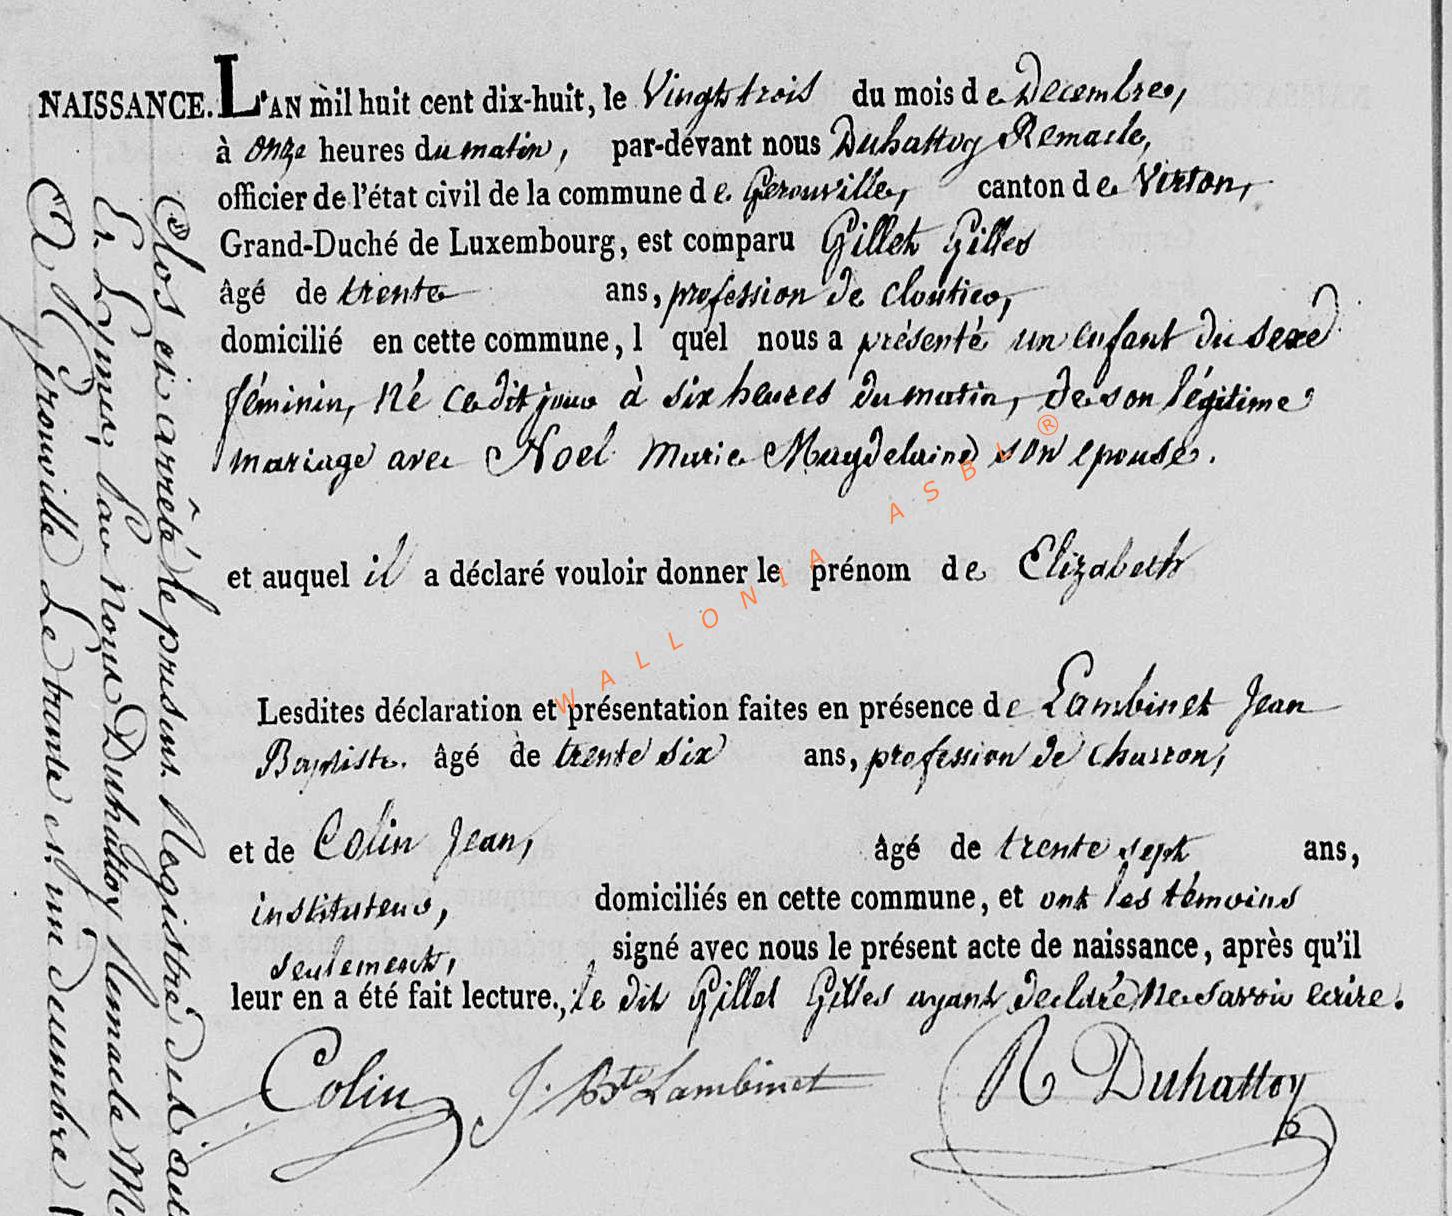 NAISSANCE. L'AN mil huit cent dix-huit, le Vingt trois du mois de Decembre,
à onze heures du matin, par-devant nous Duhattoy Remacle,
officier de l'état civil de la commune de Gerouville, canton de Virton,
Grand-Duché de Luxembourg, est comparu Gillet Gilles
âgé de trente ans, profession de cloutier,
domicilié en cette commune, l quel nous a présenté un enfant du sexe
féminin, né cedit jour à six heures du matin, de son légitime
mariage avec Noel Marie Magdelaine son epouse.
et auquel il a déclaré vouloir donner le prénom de Elizabeth
Lesdites déclaration et présentation faites en présence de Lambinet Jean
Baptiste. âgé de trente six ans, profession de charron,
et de Colin Jean, âgé de trente sept ans,
instituteur, domiciliés en cette commune, et ont les témoins
seulement, signé avec nous le présent acte de naissance, après qu'il
leur en a été fait lecture., le dit Gillet Gilles ayant declaré ne savoir ecrire.
Colin J. Bte Lambinet R Duhattoy
Clos et arrêté le présent Registre des
Et Signé, par nous Duhattoy Remacle
A Gerouville Le trente et un decembre
WALLONIA ASBL ®